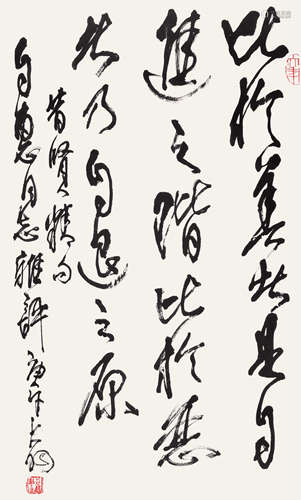 比於善者是自
進之階比於惡
者乃自退之原
昔賢精句
自惠同志雅評 庚午